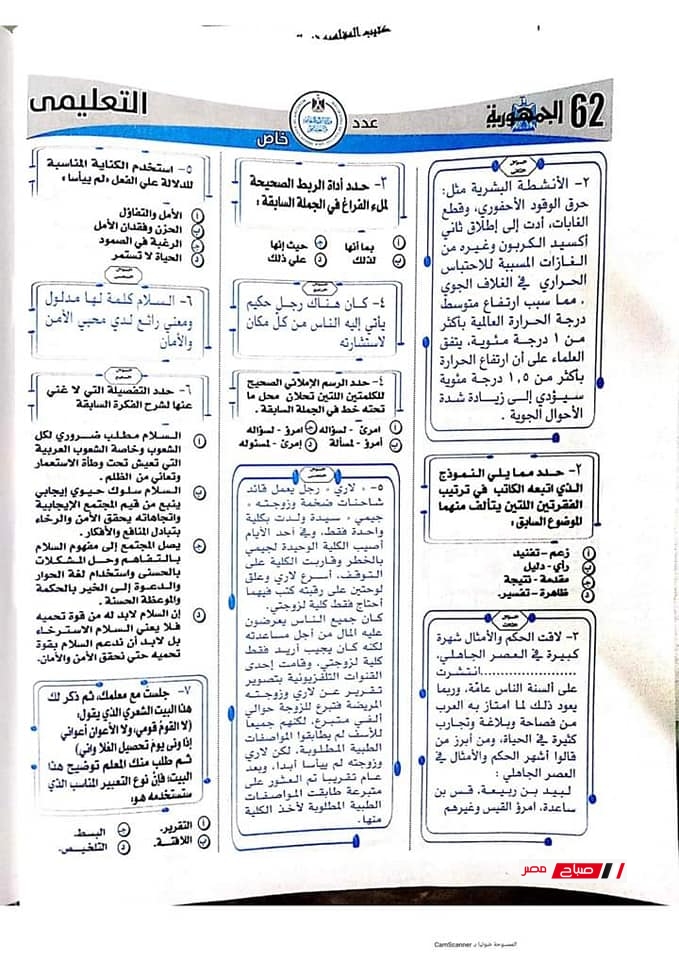 62 الجمهورية
عدد
خاص
التعليمى
٢- الأنشطة البشرية مثل:
حرق الوقود الأحفوري، وقطع
الغابات، أدت إلى إطلاق ثاني
أكسيد الكربون وغيره من
الغازات المسببة للاحتباس
الحراري في الغلاف الجوي
، مما سبب ارتفاع متوسط
درجة الحرارة العالمية بأكثر
من ١ درجة مئوية، يتفق
العلماء على أن ارتفاع الحرارة
بأكثر من ١,٥ درجة مئوية
سيؤدي إلى زيادة شدة
الأحوال الجوية .
٢- حدد مما يلي النموذج
الذي اتبعه الكاتب في ترتيب
الفقرتين اللتين يتألف منهما
الموضوع السابق:
أ زعم - تفنيد
ب رأي - دليل
ج مقدمة - نتيجة
د ظاهرة - تفسير.
٣- لاقت الحكم والأمثال شهرة
كبيرة في العصر الجاهلي،
....................انتشرت
على ألسنة الناس عامّة، وربما
يعود ذلك لما امتاز به العرب
من فصاحة وبلاغة وتجارب
كثيرة في الحياة، ومن أبرز من
قالوا أشهر الحكم والأمثال في
العصر الجاهلي :
لبيد بن ربيعة، قس بن
ساعدة، امرؤ القيس وغيرهم
٣- حدد أداة الربط الصحيحة
لملء الفراغ في الجملة السابقة :
أ بما أنها
ج حيث إنها
ب لذلك
د علي ذلك
٤- كان هناك رجل حكيم
يأتي إليه الناس من كل مكان
لاستشارته
٤- حدد الرسم الإملائي الصحيح
للكلمتين اللتين تحلان محل ما
تحته خط في الجملة السابقة .
أ امرئ - لسؤاله
ج امرؤ - لسؤاله
ب أمرؤ - لمسألة
د إمرئ - لمسئوله
٥- « لاري » رجل يعمل قائد
شاحنات ضخمة وزوجته «
جيمي » سيدة ولدت بكلية
واحدة فقط، وفي أحد الأيام
أصيب الكلية الوحيدة لجيمي
بالخطر وقاربت الكلية على
التوقف، أسرع لاري وعلق
لوحتين على رقبته كتب فيهما
أحتاج فقط كلية لزوجتي.
كان جميع الناس يعرضون
عليه المال من أجل مساعدته
لكنه كان يجيب أريد فقط
كلية لزوجتي. وقامت إحدى
القنوات التلفزيونية بتصوير
تقرير عن لاري وزوجته
المريضة فتبرع للزوجة حوالي
ألفي متبرع، لكنهم جميعاً
للأسف لم يطابقوا المواصفات
الطبية المطلوبة، لكن لاري
وزوجته لم ييأسا أبدا، وبعد
عام تقريبا تم العثور على
متبرعة طابقت المواصفات
الطبية المطلوبة لأخذ الكلية
منها.
٥- استخدم الكناية المناسبة
للدلالة علي الفعل «لم ييأسا»
أ الأمل والتفاؤل
ب الحزن وفقدان الأمل
ج الرغبة في الصمود
د الحياة لا تستمر
٦- السلام كلمة لها مدلول
ومعني رائع لدي محبي الأمن
والأمان
٦- حدد التفصيلة التي لا غني
عنها لشرح الفكرة السابقة
أ السلام مطلب ضروري لكل
الشعوب وخاصة الشعوب العربية
التي تعيش تحت وطأة الاستعمار
وتعاني من الظلم .
ب السلام سلوك حيوي إيجابي
ينبع من قيم المجتمع الإيجابية
واتجاهاته يحقق الأمن والرخاء
بتبادل المنافع والأفكار .
ج يصل المجتمع إلى مفهوم السلام
بالتفاهم وحل المشكلات
بالحسنى واستخدام لغة الحوار
والدعوة إلى الخير بالحكمة
والموعظة الحسنة .
د إن السلام لابد له من قوة تحميه
فلا يعني السلام الاسترخاء
بل لابد أن ندعم السلام بقوة
تحميه حتي نحقق الأمن والأمان.
٧- جلست مع معلمك، ثم ذكر لك
هذا البيت الشعري الذي يقول:
(لا القومُ قومي، ولا الأعوان أعواني
إذا ونى يوم تحصيل العُلا واني)
ثم طلب منك المعلم توضيح هذا
البيت؛ فإن نوع التعبير المناسب الذي
ستستخدمه هو:
أ التقرير.
ج البسط.
ب اللافتة.
د التلخيص.
صباح مصر
الممسوحة ضوئيا بـ CamScanner